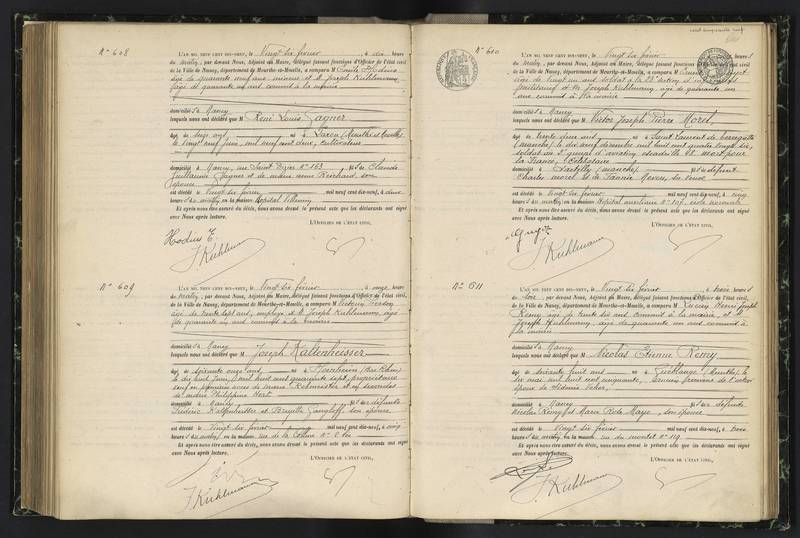 N° 608
L'AN MIL NEUF CENT DIX-NEUF, le Vingt six février, à dix heures
du matin, par devant Nous, Adjoint au Maire, délégué faisant fonctions d'Officier de l'état civil
de la Ville de Nancy, département de Meurthe-et-Moselle, a comparu M Emile Hodius
âgé de quarante neuf ans et M Joseph Kuhlmann
âgé de quarante et ans commis à la mairie
domiciliés à Nancy
lesquels nous ont déclaré que M René Louis Gagner
âgé de seize ans, né à Laxou (Meurthe et Moselle)
le vingt neuf juin, mil neuf cent deux, cultivateur
domicilié à Nancy, rue Saint Dizier n° 153 fils de Claude
Guillaume Gagner et de Marie Reichard son
épouse
est décédé le vingt six février mil neuf cent dix-neuf, à deux
heures du matin, en la maison Hôpital Villemin
Et après nous être assuré du décès, nous avons dressé le présent acte que les déclarants ont signé
avec Nous après lecture.
L'OFFICIER DE L'ÉTAT CIVIL,
Hodius E.
J. Kuhlmann
N° 609
L'AN MIL NEUF CENT DIX-NEUF, le Vingt six février, à onze heures
du matin, par devant Nous, Adjoint au Maire, délégué faisant fonctions d'Officier de l'état civil,
de la Ville de Nancy, département de Meurthe-et-Moselle, a comparu M
âgé de trente sept ans, employé et M Joseph Kuhlmann, âgé
de quarante et un ans commis à la mairie
domiciliés à Nancy
lesquels nous ont déclaré que M Joseph Kaltenheisser
âgé de soixante onze ans, né à (Bas Rhin)
le dix huit juin, mil huit cent quarante sept, propriétaire
veuf en premières noces de Marie et en secondes
de Philippine Hert
domicilié à Nancy, fils des défunts
Frédéric Kaltenheisser et son épouse
est décédé le vingt six février mil neuf cent dix-neuf, à cinq
heures du matin, en la maison, rue de la Colline n°
Et après nous être assuré du décès, nous avons dressé le présent acte que les déclarants ont signé
avec Nous après lecture.
L'OFFICIER DE L'ÉTAT CIVIL,
J. Kuhlmann
N° 610
L'AN MIL NEUF CENT DIX-NEUF, le Vingt six février
du matin, par devant Nous, Adjoint au Maire, délégué faisant fonctions d'Officier de l'état civil
de la Ville de Nancy, département de Meurthe-et-Moselle, a comparu M
âgé de vingt un ans soldat à la 23e section d'infirmiers
militaires et M Joseph Kuhlmann, âgé de quarante un
ans commis à la mairie
domiciliés à Nancy
lesquels nous ont déclaré que M Victor Joseph Pierre Morel
âgé de trente deux ans, né à Saint Laurent de
(Manche) le dix neuf décembre mil huit cent quatre vingt six,
soldat au 2e groupe d'aviation escadrille 48 mort pour
la France, célibataire
domicilié à (Manche) fils de défunt
Charles Morel et de sa veuve
est décédé le vingt six février mil neuf cent dix-neuf, à cinq
heures du matin, en la maison Hôpital auxiliaire n° 107, école normale
Et après nous être assuré du décès, nous avons dressé le présent acte que les déclarants ont signé
avec Nous après lecture.
L'OFFICIER DE L'ÉTAT CIVIL,
Guyot
J. Kuhlmann
N° 611
L'AN MIL NEUF CENT DIX-NEUF, le Vingt six février, à trois heures
du soir, par devant Nous, Adjoint au Maire, délégué faisant fonctions d'Officier de l'état civil,
de la Ville de Nancy, département de Meurthe-et-Moselle, a comparu M Lucien Henri Joseph
Remy âgé de trente six ans commis à la mairie et M
Joseph Kuhlmann, âgé de quarante un ans commis à
la mairie
domiciliés à Nancy
lesquels nous ont déclaré que M Nicolas Etienne Remy
âgé de soixante huit ans, né à (Meurthe) le
six mai mil huit cent cinquante, de l'octroi
époux de
domicilié à Nancy fils des défunts
Nicolas Remy et Marie Rose Maye, son épouse
est décédé le vingt six février mil neuf cent dix-neuf, à trois
heures du matin, en la maison, rue du montet n° 119
Et après nous être assuré du décès, nous avons dressé le présent acte que les déclarants ont signé
avec Nous après lecture.
L'OFFICIER DE L'ÉTAT CIVIL,
J. Kuhlmann